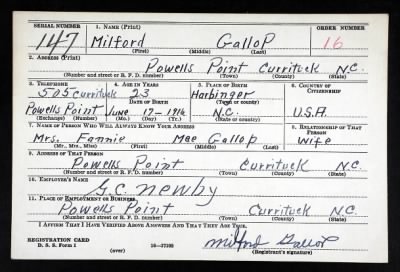 SERIAL NUMBER 1. NAME (Print) ORDER NUMBER
147 Milford Gallop 16
(First) (Middle) (Last)
2. ADDRESS (Print)
Powells Point Currituck N.C.
(Number and street or R. F. D. number) (Town) (County) (State)
3. TELEPHONE 4. AGE IN YEARS 5. PLACE OF BIRTH 6. COUNTRY OF CITIZENSHIP
505 Currituck 23 Harbinger
DATE OF BIRTH (Town or county)
Powells Point June 17-1916 N.C. U.S.A.
(Exchange) (Number) (Mo.) (Day) (Yr.) (State or country)
7. NAME OF PERSON WHO WILL ALWAYS KNOW YOUR ADDRESS 8. RELATIONSHIP OF THAT PERSON
Mrs. Fannie Mae Gallop Wife
(Mr., Mrs., Miss) (First) (Middle) (Last)
9. ADDRESS OF THAT PERSON
Powells Point Currituck N.C.
(Number and street or R. F. D. number) (Town) (County) (State)
10. EMPLOYER'S NAME
G.C. Newby
11. PLACE OF EMPLOYMENT OR BUSINESS
Powells Point Currituck N.C.
(Number and street or R. F. D. number) (Town) (County) (State)
I AFFIRM THAT I HAVE VERIFIED ABOVE ANSWERS AND THAT THEY ARE TRUE.
REGISTRATION CARD
D. S. S. Form 1 (over) Milford Gallop
(Registrant's signature)